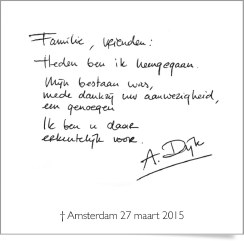 Familie, vrienden:
Heden ben ik heengegaan.
Mijn bestaan was,
mede dankzij uw aanwezigheid,
een genoegen
Ik ben u daar
erkentelijk voor.
A. Dijk
† Amsterdam 27 maart 2015